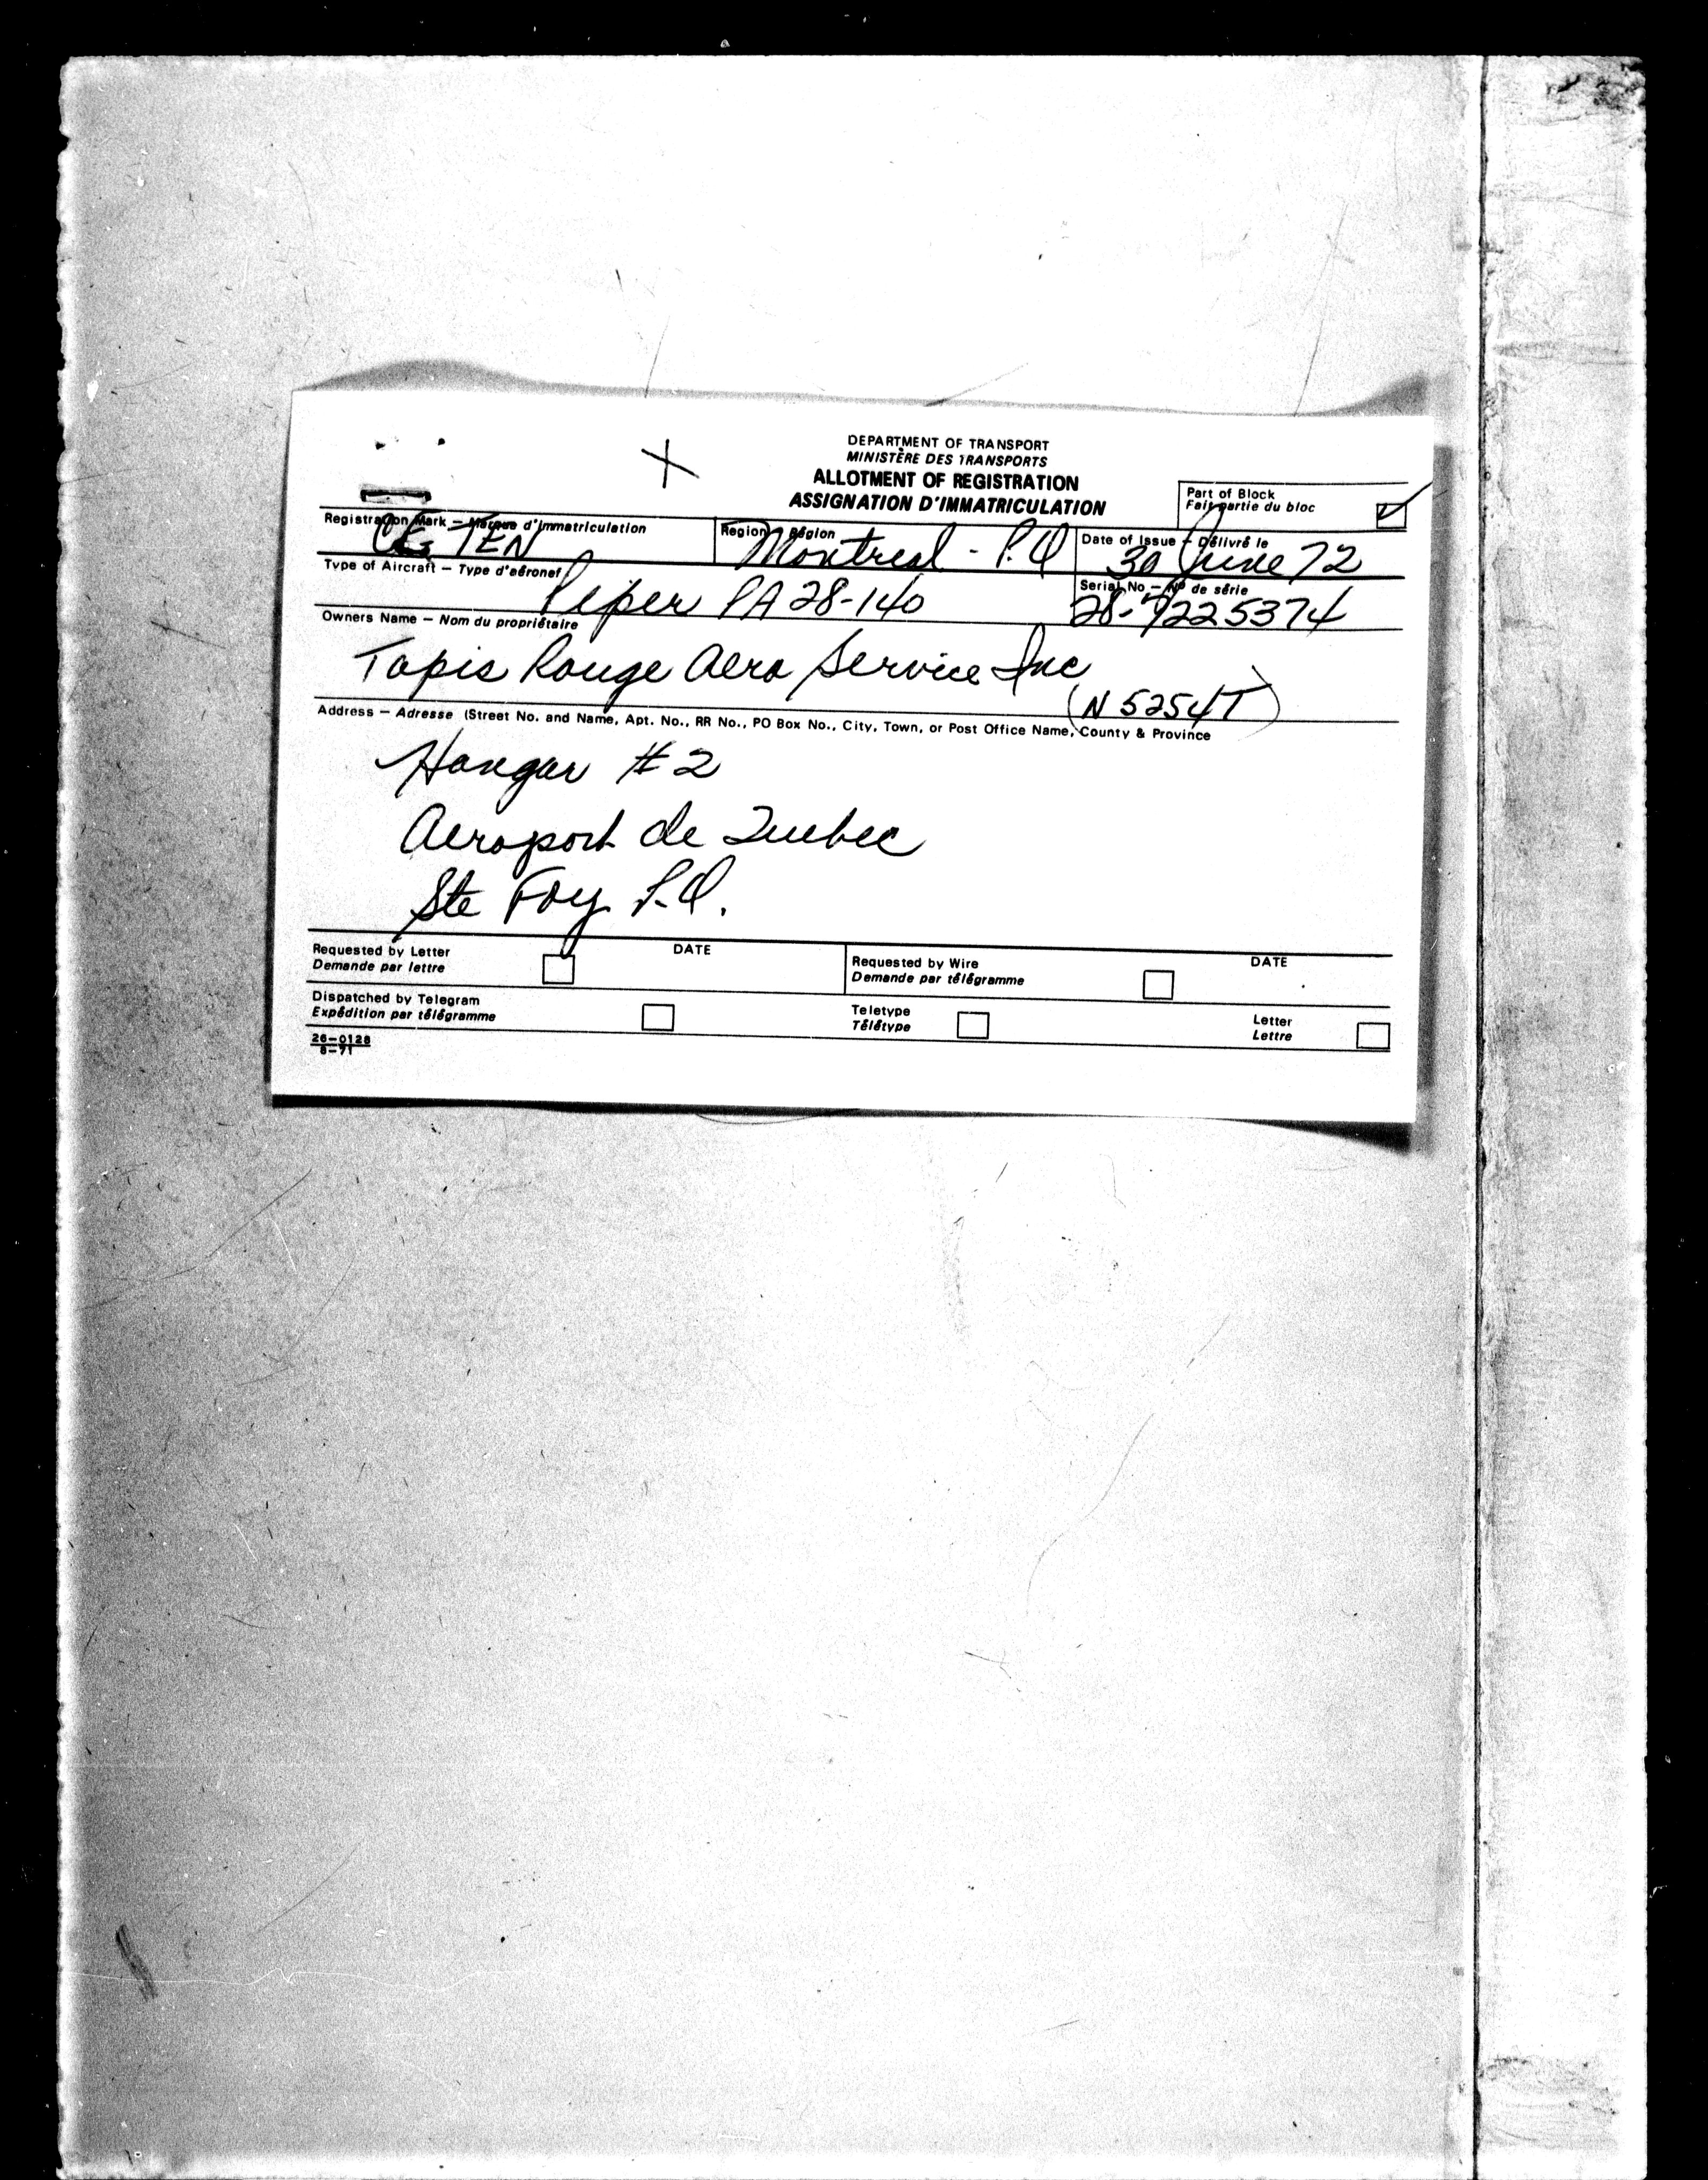 DEPARTMENT OF TRANSPORT
MINISTÈRE DES TRANSPORTS
ALLOTMENT OF REGISTRATION
ASSIGNATION D'IMMATRICULATION
Part of Block
Fait partie du bloc
Registration Mark — Marque d'immatriculation
TEN
Region — Région
Montreal - P.Q
Date of Issue — Délivré le
30 June 72
Type of Aircraft — Type d'aéronef
Piper PA 28-140
Serial No — Nº de série
28-7225374
Owners Name — Nom du propriétaire
Tapis Rouge Aero Service Inc
(N 5254T)
Address — Adresse (Street No. and Name, Apt. No., RR No., PO Box No., City, Town, or Post Office Name, County & Province
Hangar #2
Aeroport de Quebec
Ste Foy P.Q.
Requested by Letter
Demande par lettre
DATE
Requested by Wire
Demande par télégramme
DATE
Dispatched by Telegram
Expédition par télégramme
Teletype
Télétype
Letter
Lettre
26-0128
8-71